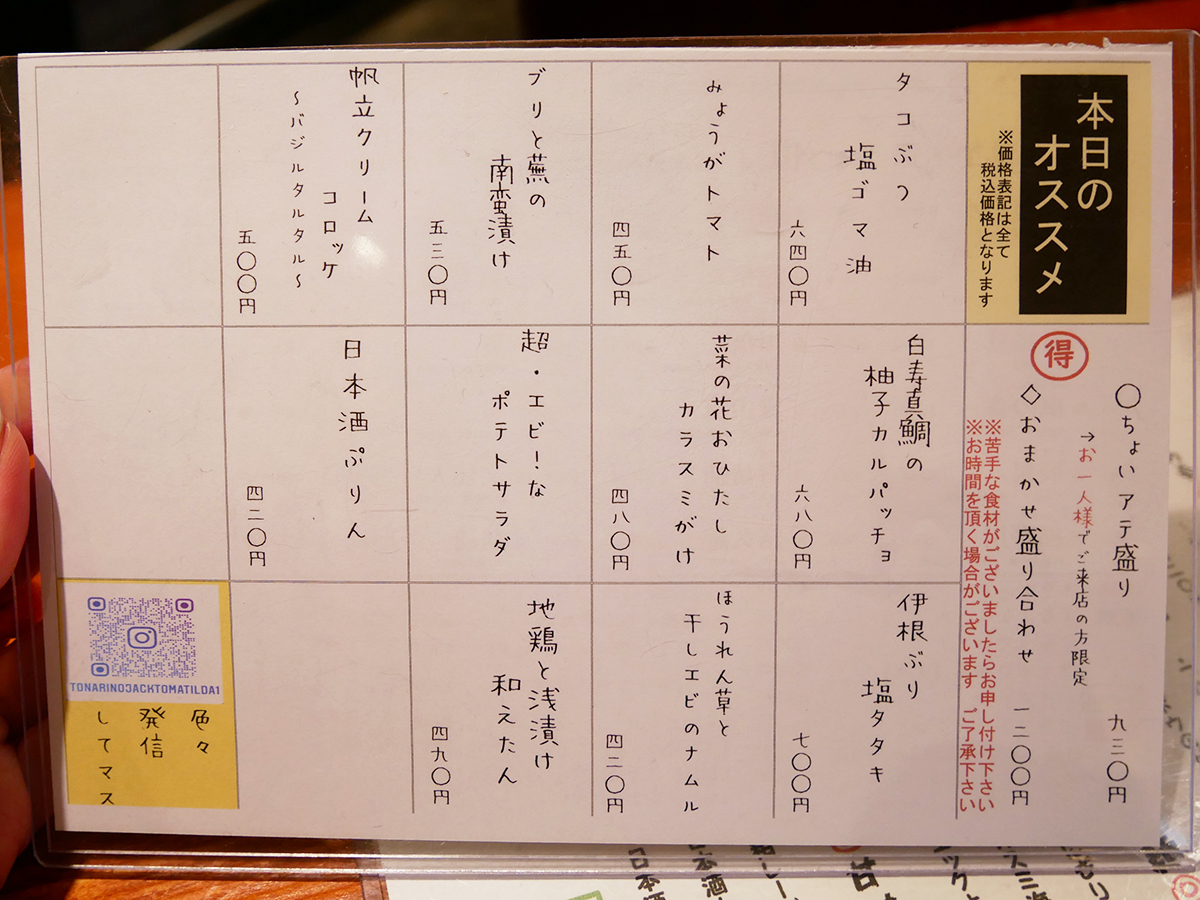 本日の
オススメ
※価格表記は全て
税込価格となります
得
○ちょいアテ盛り
→お一人様でご来店の方限定
九三〇円
◇おまかせ盛り合わせ
一二〇〇円
※苦手な食材がございましたらお申し付け下さい
※お時間を頂く場合がございます ご了承下さい
タコぶつ
塩ゴマ油
六四〇円
白寿真鯛の
柚子カルパッチョ
六八〇円
伊根ぶり
塩タタキ
七〇〇円
みょうがトマト
四五〇円
菜の花おひたし
カラスミがけ
四八〇円
ほうれん草と
干しエビのナムル
四二〇円
ブリと蕪の
南蛮漬け
五三〇円
超・エビ!な
ポテトサラダ
地鶏と浅漬け
和えたん
四九〇円
帆立クリーム
コロッケ
～バジルタルタル～
五〇〇円
日本酒ぷりん
四二〇円
TONARINOJACKTOMATILDA1
色々
発信
してマス